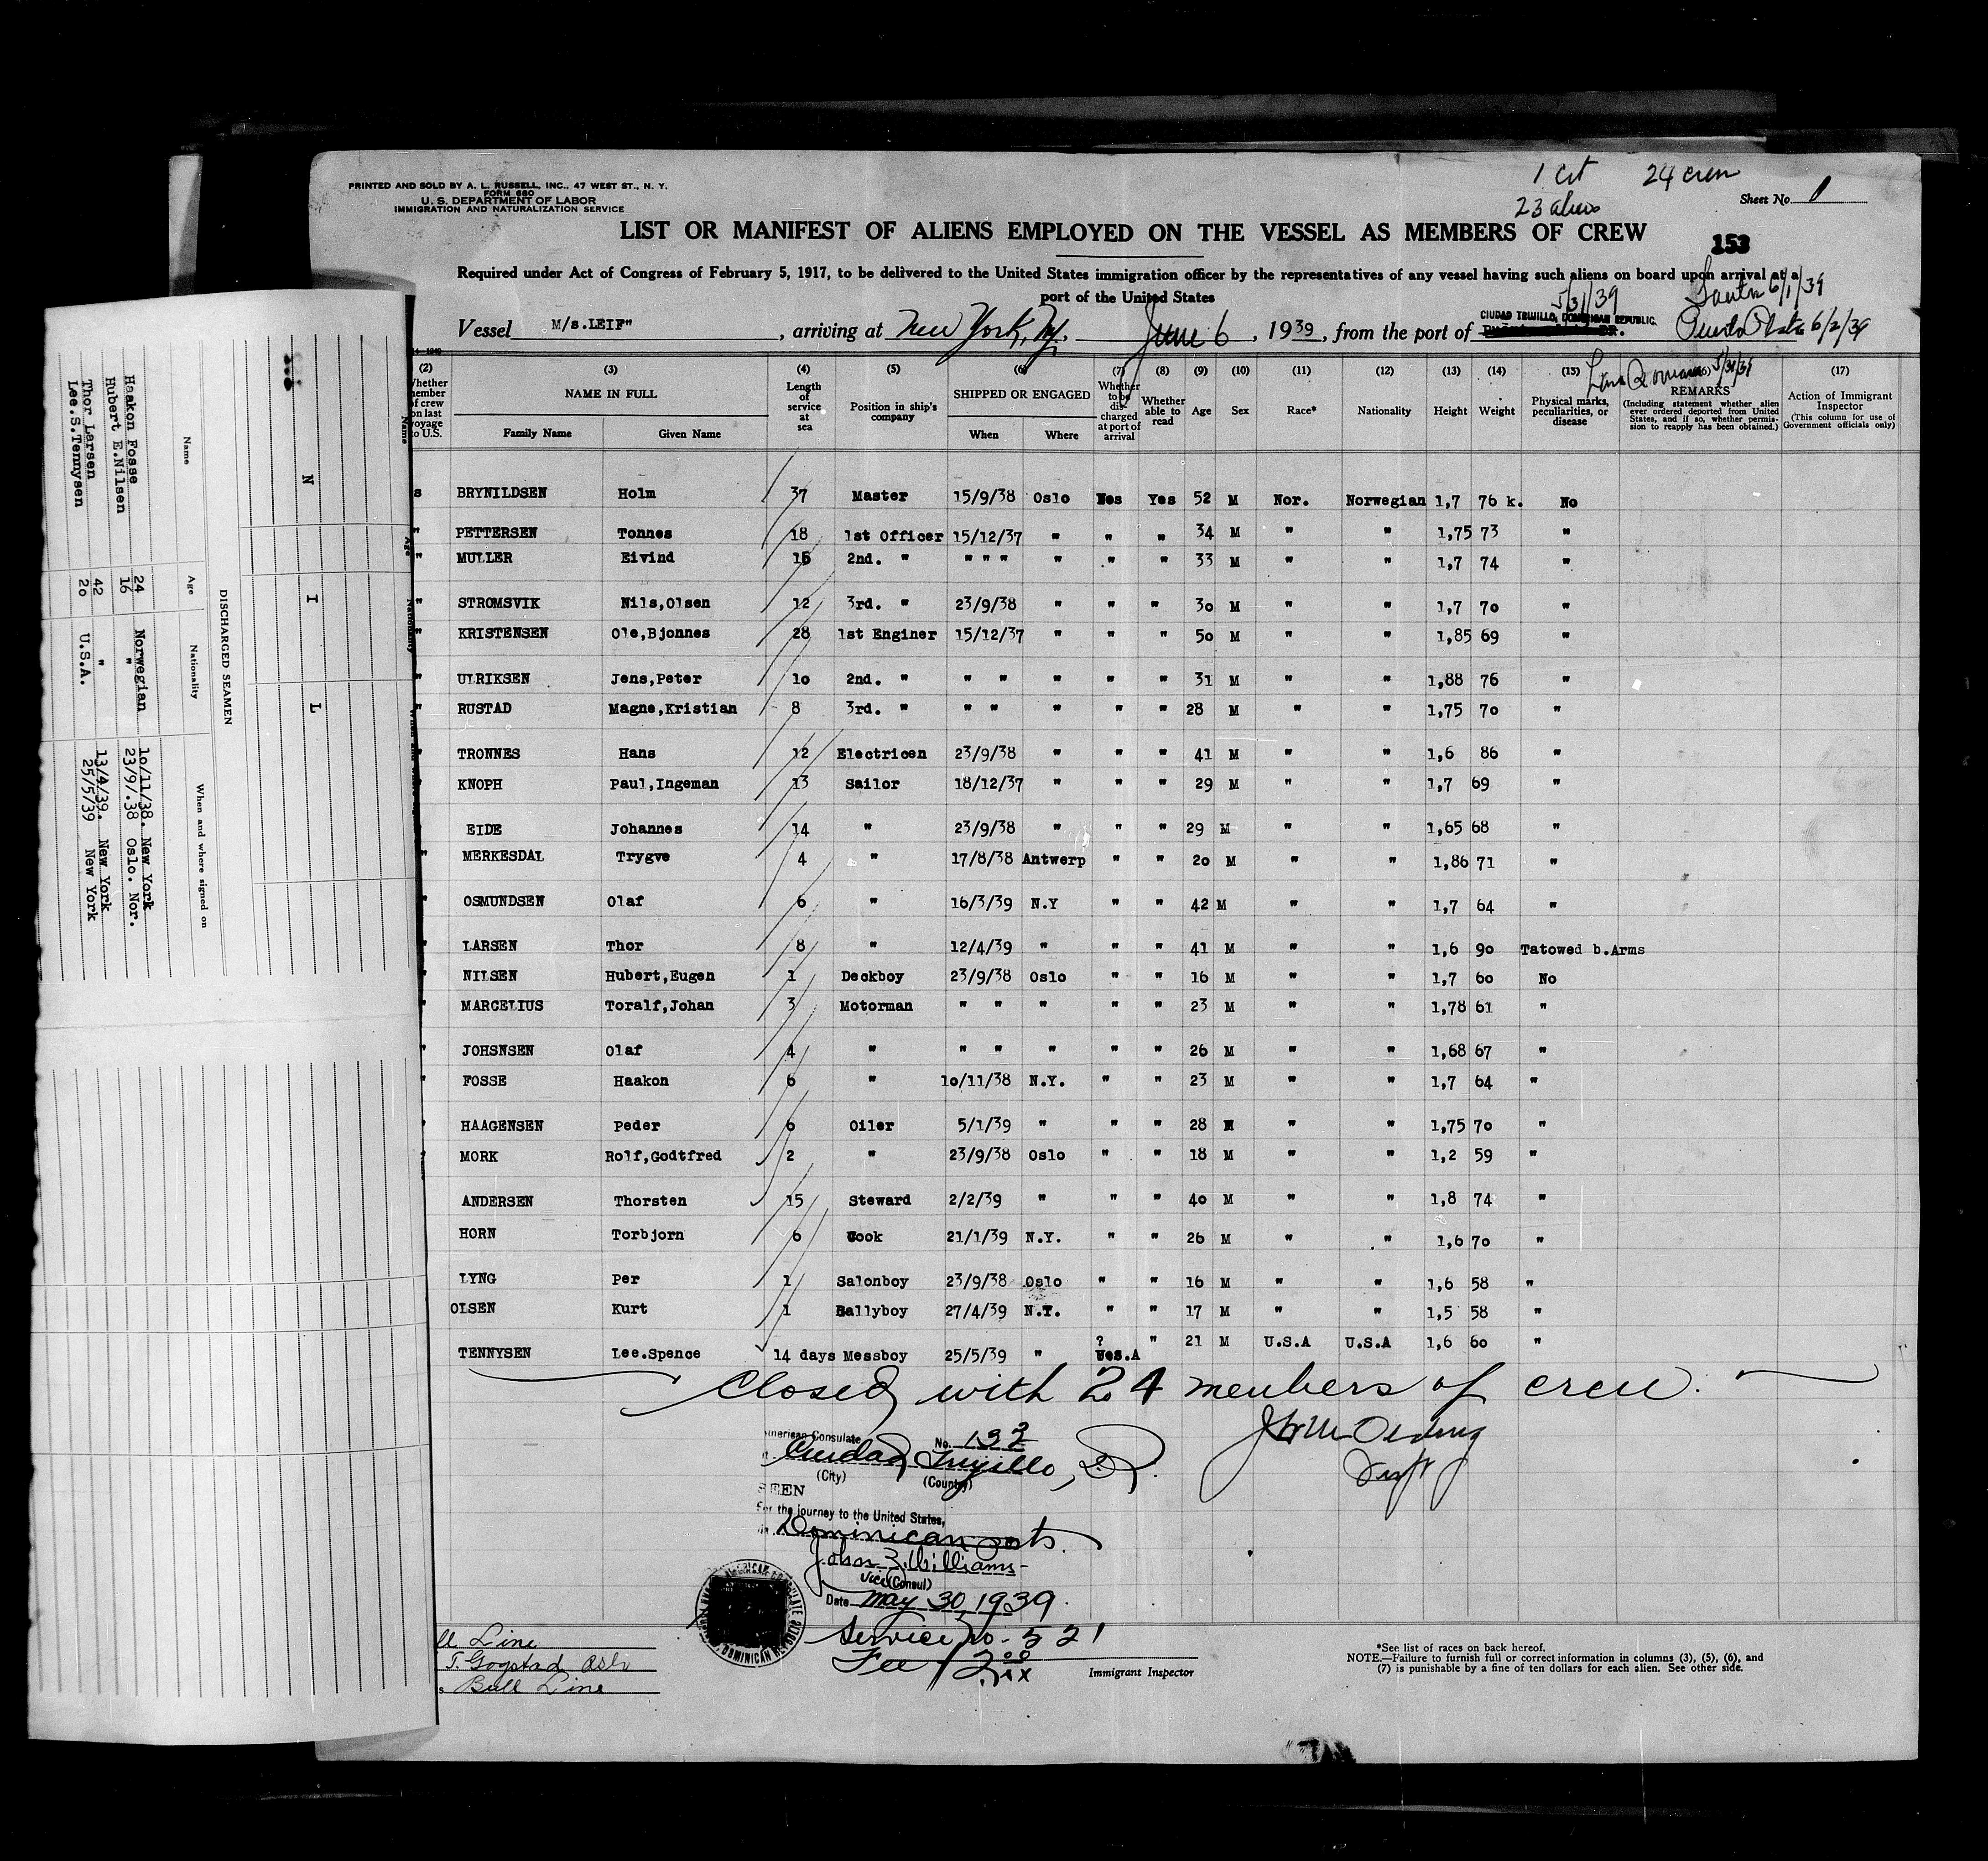 PRINTED AND SOLD BY A. L. RUSSELL, INC., 47 WEST ST., N. Y.
FORM 680
U. S. DEPARTMENT OF LABOR
IMMIGRATION AND NATURALIZATION SERVICE
1 Cit 24 crew
23 aliens
Sheet No. 1
LIST OR MANIFEST OF ALIENS EMPLOYED ON THE VESSEL AS MEMBERS OF CREW
153
Required under Act of Congress of February 5, 1917, to be delivered to the United States immigration officer by the representatives of any vessel having such aliens on board upon arrival at a
port of the United States
5/31/39
6/1/39
Vessel M/s.LEIF" , arriving at New York, Ny. June 6 , 1939 , from the port of CIUDAD TRUJILLO, DOMINICAN REPUBLIC.
6/2/39
5/31/39
(2) (3) (4) (5) (6) (7) (8) (9) (10) (11) (12) (13) (14) (15) (16) (17)
Whether member of crew on last voyage to U.S.
NAME IN FULL
Family Name Given Name
Length of service at sea
Position in ship's company
SHIPPED OR ENGAGED
When Where
Whether to be discharged at port of arrival
Whether able to read
Age
Sex
Race*
Nationality
Height
Weight
Physical marks, peculiarities, or disease
REMARKS
(Including statement whether alien ever ordered deported from United States, and if so, whether permission to reapply has been obtained.)
Action of Immigrant Inspector
(This column for use of Government officials only)
s BRYNILDSEN Holm 37 Master 15/9/38 Oslo Yes 52 M Nor. Norwegian 1,7 76 k. No
" PETTERSEN Tonnes 18 1st Officer 15/12/37 " " " 34 M " " 1,75 73 "
" MULLER Eivind 15 2nd. " " " " " " " 33 M " " 1,7 74 "
" STROMSVIK Nils,Olsen 12 3rd. " 23/9/38 " " " 30 M " " 1,7 70 "
" KRISTENSEN Ole,Bjonnes 28 1st Enginer 15/12/37 " " " 50 M " " 1,85 69 "
" ULRIKSEN Jens,Peter 10 2nd. " " " " " " 31 M " " 1,88 76 "
" RUSTAD Magne,Kristian 8 3rd. " " " " " " 28 M " " 1,75 70 "
" TRONNES Hans 12 Electricen 23/9/38 " " " 41 M " " 1,6 86 "
" KNOPH Paul,Ingeman 13 Sailor 18/12/37 " " " 29 M " " 1,7 69 "
EIDE Johannes 14 " 23/9/38 " " " 29 M " " 1,65 68 "
" MERKESDAL Trygve 4 " 17/8/38 Antwerp " " 20 M " " 1,86 71 "
" OSMUNDSEN Olaf 6 " 16/3/39 N.Y " " 42 M " " 1,7 64 "
" LARSEN Thor 8 " 12/4/39 " " " 41 M " " 1,6 90 Tatowed b.Arms
" NILSEN Hubert,Eugen 1 Deckboy 23/9/38 Oslo " " 16 M " " 1,7 60 No
" MARCELIUS Toralf,Johan 3 Motorman " " " " " 23 M " " 1,78 61 "
" JOHSNSEN Olaf 4 " " " " " " 26 M " " 1,68 67 "
" FOSSE Haakon 6 " 10/11/38 N.Y. " " 23 M " " 1,7 64 "
" HAAGENSEN Peder 6 Oiler 5/1/39 " " " 28 M " " 1,75 70 "
" MORK Rolf,Godtfred 2 " 23/9/38 Oslo " " 18 M " " 1,2 59 "
ANDERSEN Thorsten 15 Steward 2/2/39 " " " 40 M " " 1,8 74 "
HORN Torbjorn 6 Cook 21/1/39 N.Y. " " 26 M " " 1,6 70 "
LYNG Per 1 Salonboy 23/9/38 Oslo " " 16 M " " 1,6 58 "
OLSEN Kurt 1 Gallyboy 27/4/39 N.Y. " " 17 M " " 1,5 58 "
TENNYSEN Lee.Spence 14 days Messboy 25/5/39 " ? " 21 M U.S.A U.S.A 1,6 60 "
Closed with 24 members of crew.
American Consulate No. 132
Ciudad Trujillo, D.R.
(City) (Country)
SEEN
For the journey to the United States,
Dominican ports.
John Z. Williams
Vice (Consul)
Date May 30, 1939.
Service No. 521
Fee $2.00
Immigrant Inspector
*See list of races on back hereof.
NOTE.—Failure to furnish full or correct information in columns (3), (5), (6), and
(7) is punishable by a fine of ten dollars for each alien. See other side.
ll Line
T. Gogstad Oslo
Bull Line
N I L
DISCHARGED SEAMEN
Name Age Nationality When and where signed on
Haakon Fosse 24 Norwegian 10/11/38. New York
Hubert E.Nilsen 16 " 23/9/.38 Oslo. Nor.
Thor Larsen 42 " 13/4/39. New York
Lee.S.Tennysen 20 U.S.A. 25/5/39 New York